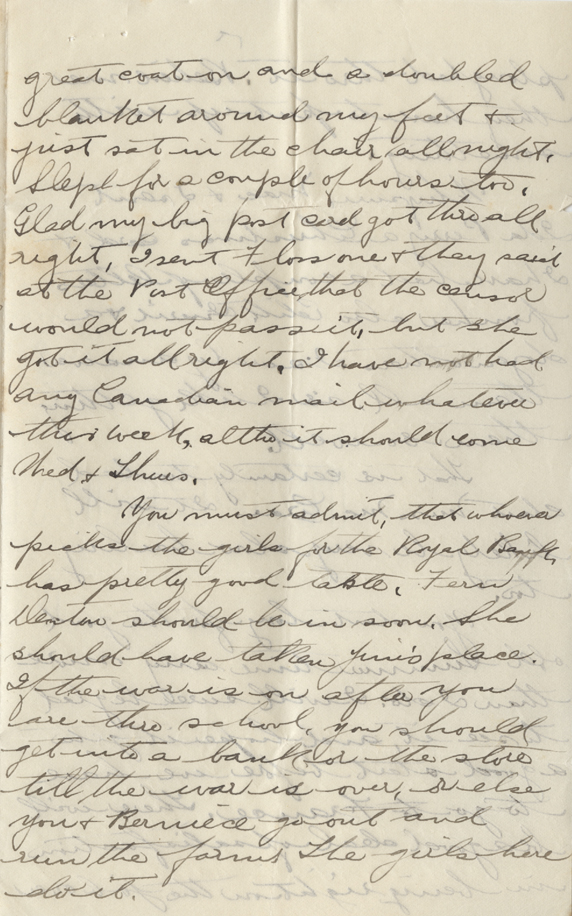 great coat on and a doubled
blanket around my feet &
just sat in the chair all night.
Slept for a couple of hours too.
Glad my big post card got thro all
right, I sent Floss one & they said
at the Post Office, that the censor
would not pass it, but she
got it all right. I have not had
any Canadian mail whatever
this week, altho it should come
Wed & Thurs.
You must admit, that whoever
picks the girls for the Royal Bank
has pretty good taste. Fern
should be in soon. She
should have taken place.
If the war is on after you
are thro school, you should
get into a bank or the store
till the war is over, or else
you & Berniece go out and
run the farm. The girls here
do it.